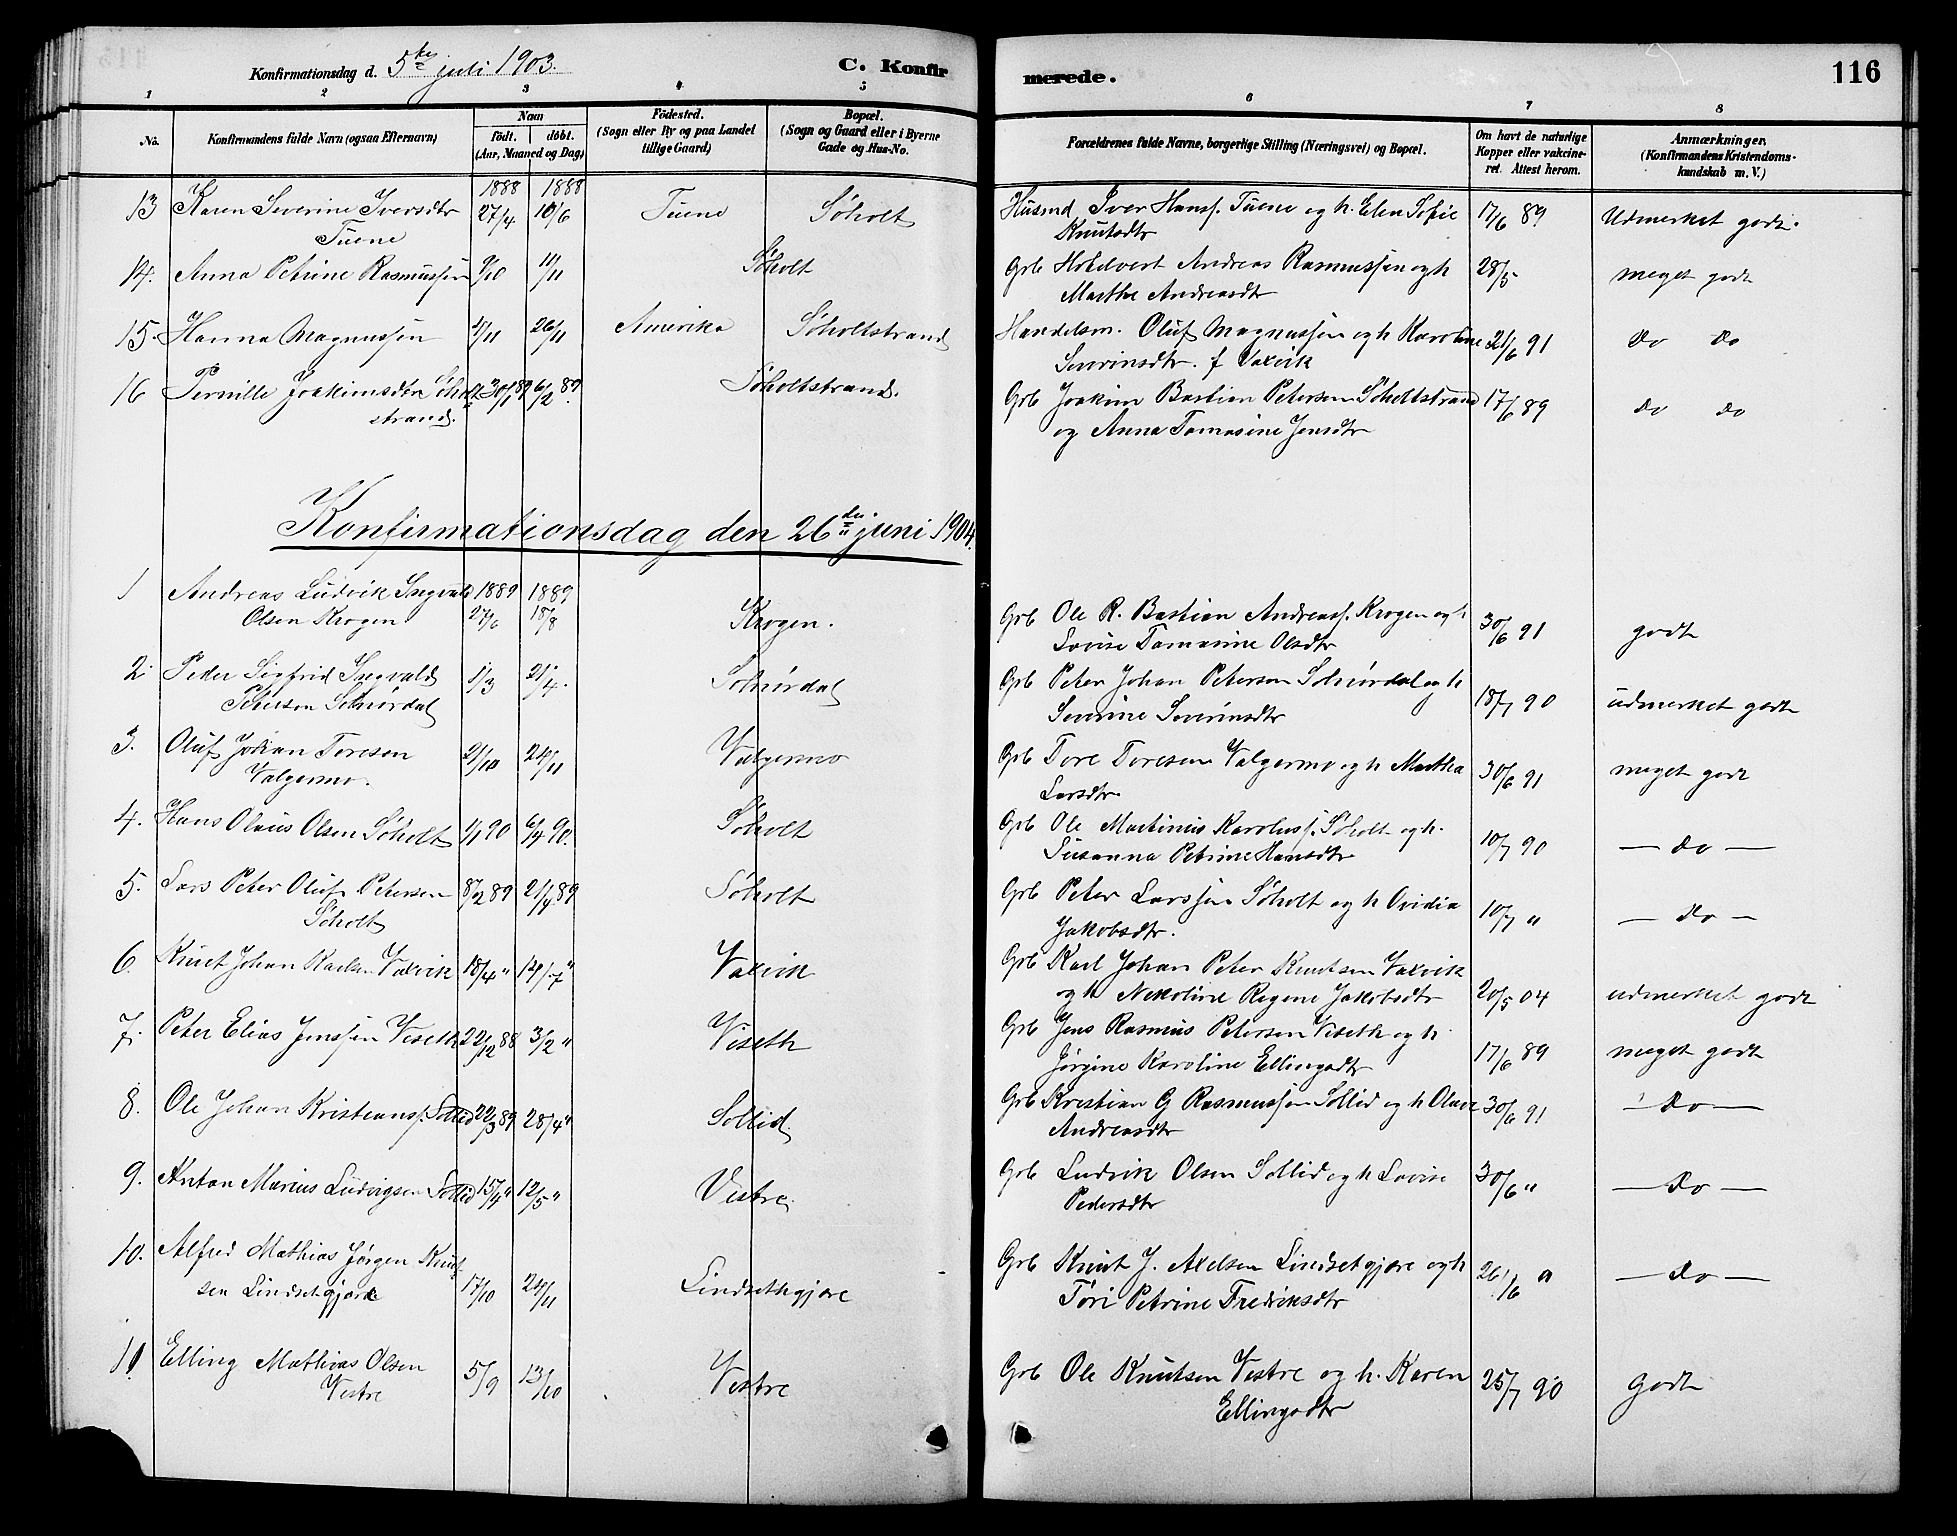 Konfirmationsdag d. 5te juli 1903.
C. Konfirmerede.
116
1 2 3 4 5 6 7 8
No.
Konfirmandens fulde Navn (ogsaa Efternavn)
Naar
født. døbt.
(Aar, Maaned og Dag)
Fødested.
(Sogn eller By og paa Landet
tillige Gaard)
Bopæl.
(Sogn og Gaard eller i Byerne
Gade og Hus-No.
Forældrenes fulde Navne, borgerlige Stilling (Næringsvei) og Bopæl.
Om havt de naturlige
Kopper eller vakcine-
ret. Attest herom.
Anmærkninger.
(Konfirmandens Kristendoms-
kundskab m. V.)
1888 1888
13 Karen Severine Iversdtr 27/4 10/6 Tuene Søholt Husmd Iver Hanss. Tuene og h. Elen Sofie 17/6 89 Udmerket godt.
Tuene Knutsdtr
14. Anna Petrine Rasmussen 9/10 11/11 Søholt Grb Hotelvert Andreas Rasmussen og h 28/5 meget godt
Marthe Andreasdtr
15. Hanna Magnussen 4/11 26/11 Amerika Søholtstrand Handelsm. Oluf Magnussen og h Karoline 21/6 91 do do
Severinsdtr. f Vaxvik
16 Pernille Joakimsdtr Søholt 30/1 89 6/2 89. Søholtstrand. Grb Joakim Bastian Petersen Søholtstrand 17/6 89 do do
strand. og Anna Tomasine Jensdtr
Konfirmationsdag den 26de juni 1904.
1 Andreas Ludvik Ingvald 1889 1889
Olsen Krogen 27/6 18/8 Krogen. Grb Ole R. Bastian Andreass. Krogen og h. 30/6 91 godt
Lovise Tomasine Olsdtr
2. Peder Sigfrid Ingvald 1/3 21/4. Solnørdal Grb Peter Johan Petersen Solnørdal og h 18/7 90 udmerket godt
Petersen Solnørdal Severine Severinsdtr
3. Oluf Johan Toresen 21/10 24/11 Valgermo Grb Tore Toresen Valgermo og h Martha 30/6 91 meget godt
Valgermo. Larsdtr.
4. Hans Olaus Olsen Søholt 1/1 90 6/4 90. Søholt Grb Ole Martinus Karoluss. Søholt og h. 10/7 90 — do —
Susanna Petrine Hansdtr
5. Lars Peter Oluf Petersen 8/2 89 21/4 89 Søholt Grb Peter Larssen Søholt og h Ovidia 10/7 " — do —
Søholt Jakobsdtr.
6. Knut Johan Karlsen Vaxvik 18/4 " 14/7 " Vaxvik Grb Karl Johan Peter Knutsen Vaxvik
og h Nekoline Regine Jakobsdtr 20/5 04 udmerket godt
7. Peter Elias Jenssen Viseth 22/12 88 3/2 " Viseth Grb Jens Rasmus Petersen Viseth og h
Jørgine Karoline Ellingsdtr 17/6 89 meget godt
8. Ole Johan Kristianss. Sollid 22/3 89 28/4 " Sollid. Grb Kristian G Rasmussen Sollid og h Olave 30/6 91 — do —
Andreasdtr
9. Anton Marius Ludvigsen Sollid 15/4 " 12/5 " Vestre. Grb Ludvik Olsen Sollid og h Lovise 30/6 " — do —
Pedersdtr
10. Alfred Mathias Jørgen Knut-
sen Lindsetgjære 17/10 24/11 Lindsethgjære Grb Knut J. Axelsen Lindsetgjære og h 26/6 " — do —
Tøri Petrine Fredriksdtr
11 Elling Mathias Olsen 5/9 13/10 Vestre Grb Ole Knutsen Vestre og h. Karen 25/7 90 Godt
Vestre Ellingsdtr